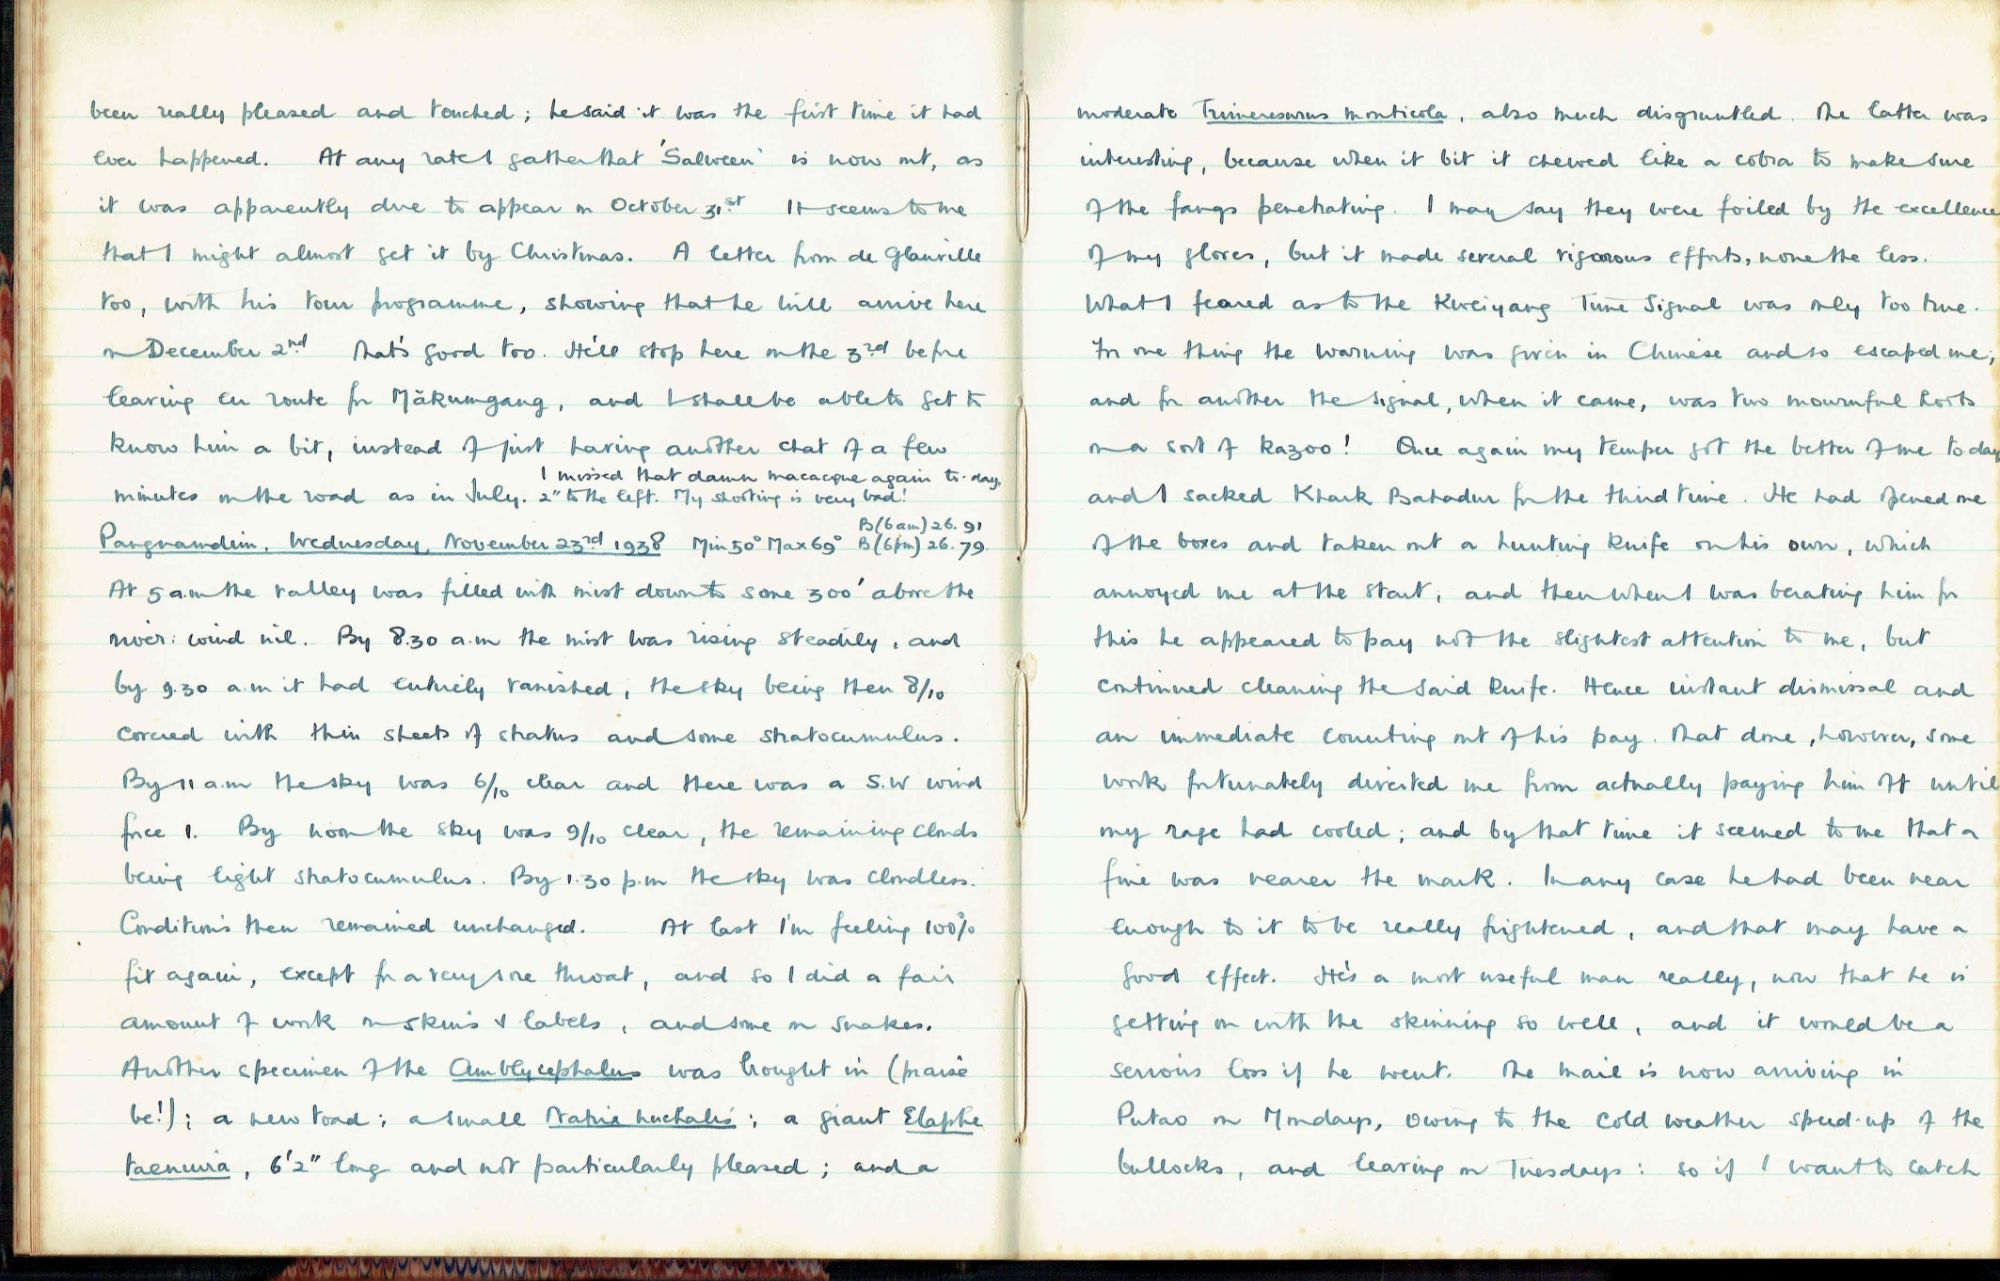 been really pleased and touched; he said it was the first time it had
ever happened. At any rate I gather that 'Salween' is now out, as
it was apparently due to appear on October 31st It seems to me
that I might almost get it by Christmas. A letter from de Glanville
too, with his tour programme, showing that he will arrive here
on December 2nd That's good too. He'll stop here on the 3rd before
leaving en route for Măkumgang, and I shall be able to get to
know him a bit, instead of just having another chat of a few
minutes on the road as in July. I missed that damn macacque again to-day,
2" to the left. My shooting is very bad!
Pangnamdim. Wednesday, November 23rd 1938 Min 50° Max 69° B(6am) 26.91
B(6pm) 26.79
At 5 a.m the valley was filled with mist down to some 300' above the
river: wind nil. By 8.30 a.m the mist was rising steadily, and
by 9.30 a.m it had entirely vanished, the sky being then 8/10
covered with thin sheets of stratus and some stratocumulus.
By 11 a.m the sky was 6/10 clear and there was a S.W wind
force 1. By noon the sky was 9/10 clear, the remaining clouds
being light stratocumulus. By 1.30 p.m the sky was cloudless.
Conditions then remained unchanged. At last I'm feeling 100%
fit again, except for a very sore throat, and so I did a fair
amount of work on skins & labels, and some on snakes.
Another specimen of the Amblycephalus was brought in (praise
be!); a new toad; a small Natrix nuchalis; a giant Elaphe
taeniura, 6'2" long and not particularly pleased; and a
moderate Trimeresurus monticola, also much disgruntled. The latter was
interesting, because when it bit it chewed like a cobra to make sure
of the fangs penetrating. I may say they were foiled by the excellence
of my gloves, but it made several vigorous efforts, none the less.
What I feared as to the Kweiyang Time Signal was only too true.
For one thing the warning was given in Chinese and so escaped me;
and for another the signal, when it came, was two mournful hoots
on a sort of Kazoo! Once again my temper got the better of me to day
and I sacked Khark Bahadur for the third time. He had opened one
of the boxes and taken out a hunting knife on his own, which
annoyed me at the start, and then when I was berating him for
this he appeared to pay not the slightest attention to me, but
continued cleaning the said knife. Hence instant dismissal and
an immediate counting out of his pay. That done, however, some
work fortunately diverted me from actually paying him off until
my rage had cooled; and by that time it seemed to me that a
fine was nearer the mark. In any case he had been near
enough to it to be really frightened, and that may have a
good effect. He's a most useful man really, now that he is
getting on with the skinning so well, and it would be a
serious loss if he went. The mail is now arriving in
Putao on Mondays, owing to the cold weather speed-up of the
bullocks, and leaving on Tuesdays: so if I want to catch